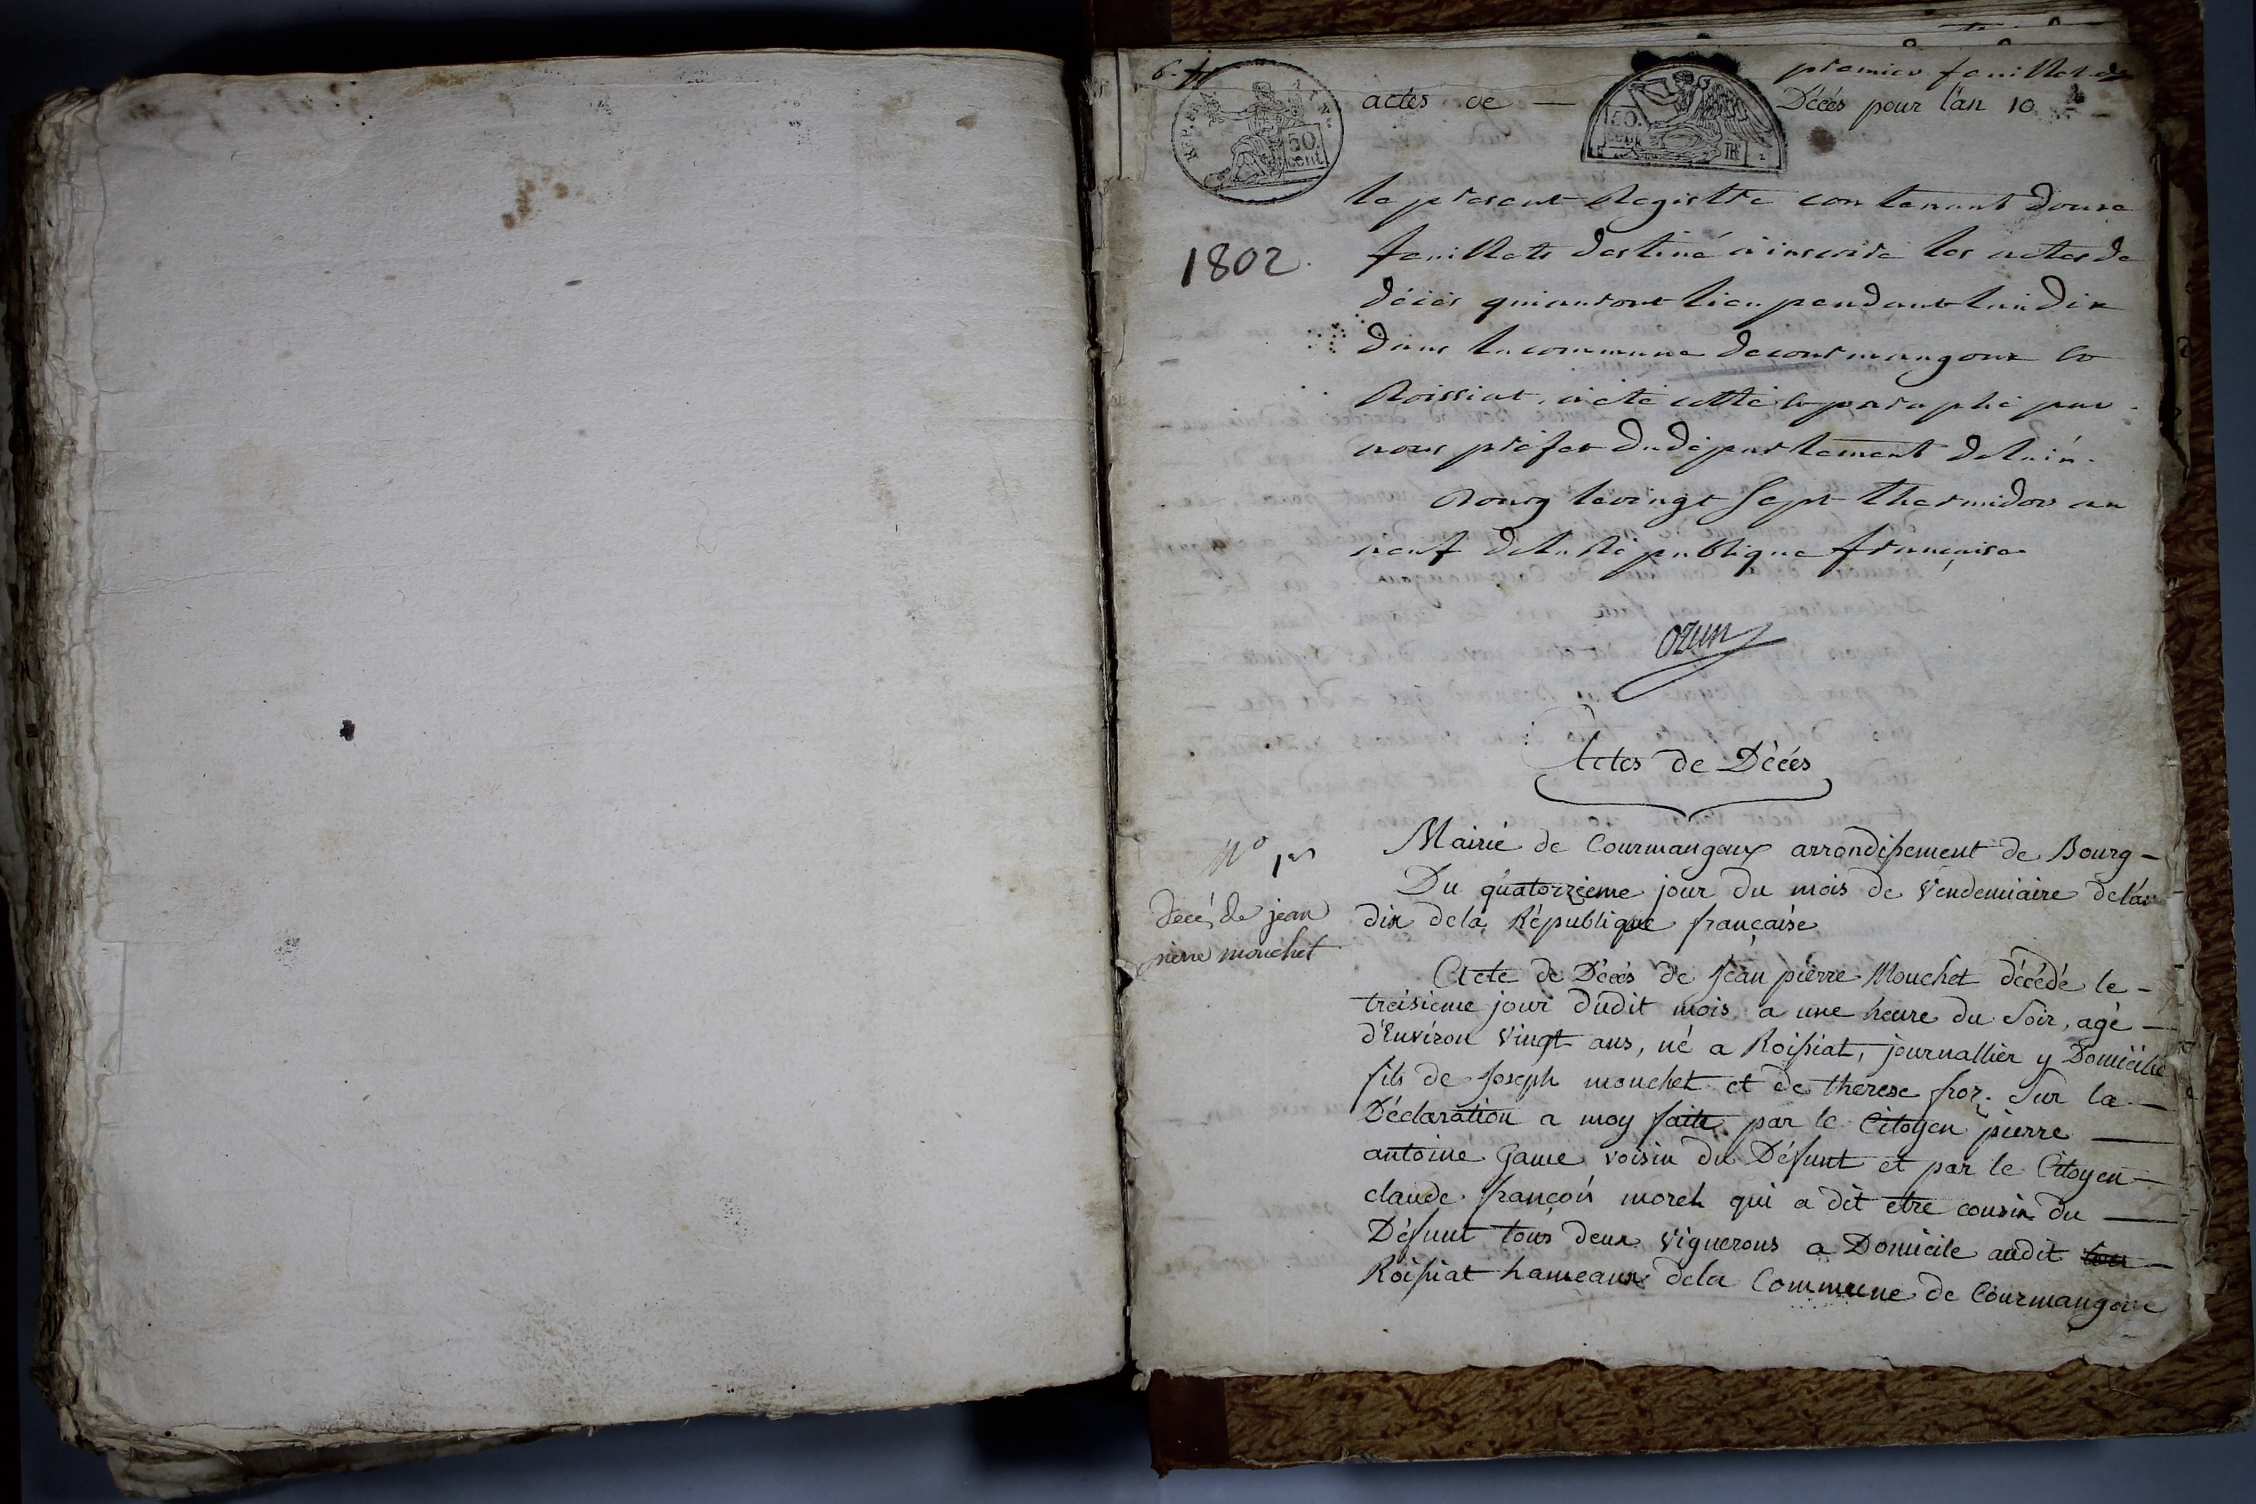 premier feuillet de
actes de — Décés pour l'an 10
REP. FRA
50
cent
50
1802.
le present Registre contenant douze
feuillets destiné a inscrire les actes de
décès qui auront lieu pendant l'an dix
dans la commune de courmangoux et
Roissiat, a été cotté et paraphé par
nous préfet du département de l'ain.
Bourg le vingt sept thermidor an
neuf de la République française
ozun
Actes de Décés
Mairie de Courmangoux arrondissement de Bourg -
Du quatorzieme jour du mois de Vendemiaire de l'an
dix de la République française
No 1er
decé de jean
pierre mouchet
Acte de Décés de Jean pierre Mouchet décédé le -
treisieme jour dudit mois a une heure du Soir, agé -
d'Environ Vingt ans, né a Roissiat, journallier y Domicilié
fils de Joseph mouchet et de therese froz. Sur la -
Déclaration a moy faite par le Citoyen pierre —
antoine Game voisin du Défunt et par le Citoyen -
claude françois morel qui a dit etre cousin du —
Défunt tous deux Vignerons a Domicile audit
Roissiat hameaux dela Commune de Courmangoux